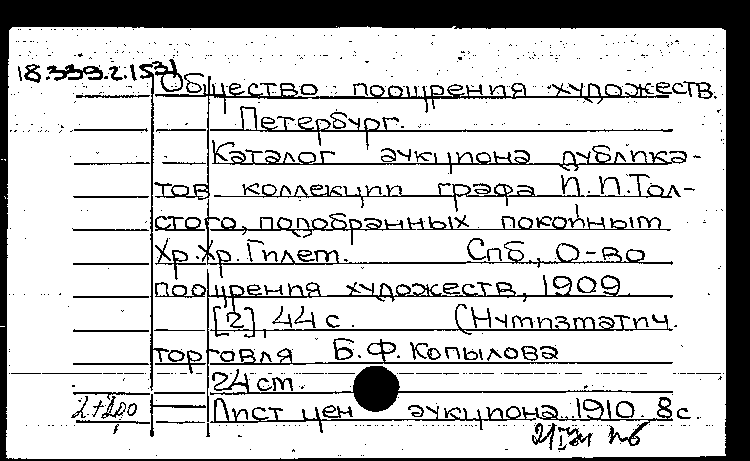 18.339.2.1531
Общество поощрения художеств.
Петербург.
Каталог аукциона дублика-
тов коллекции графа И.И.Тол-
стого, подобранных покойным
Хр.Хр.Гилем. Спб., О-во
поощрения художеств, 1909
[2], 44 с. (Нумизматич.
торговля Б.Ф.Копылова
24 cm.
Лист цен аукциона 1910. 8с.